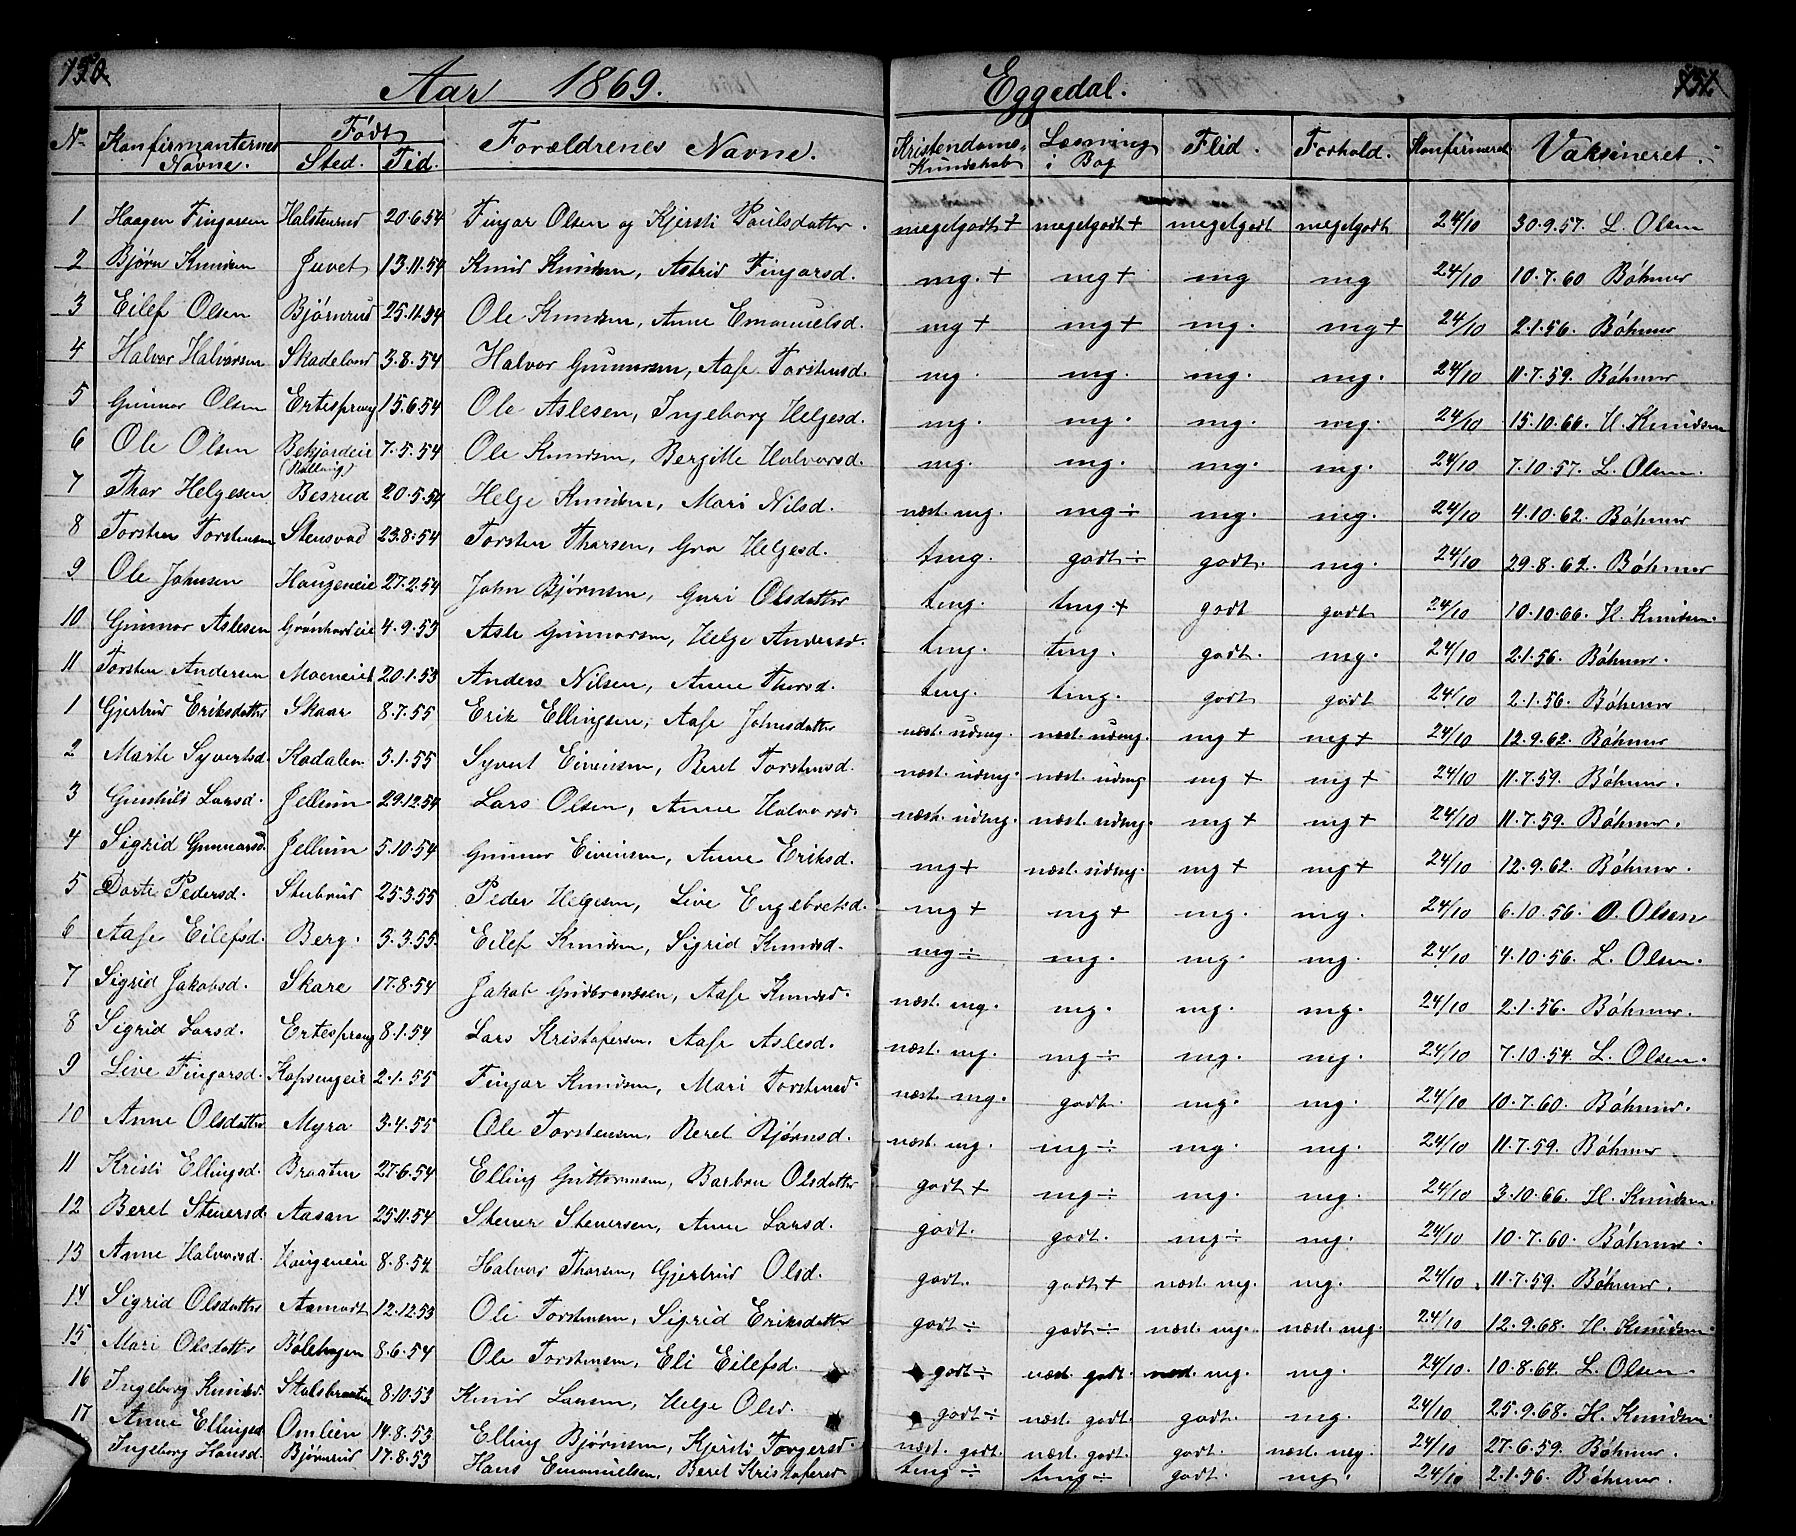 150
Aar 1869.
Eggedal.
151
No Konfirmanternes Navne. Født Sted. Tid. Forældrenes Navne. Kristendoms-Kundskab Læsning i Bog Flid. Forhold. Konfirmeret Vaksineret.
1 Haagen Fingarsen Halstenrud 20.6.54 Fingar Olsen og Kjersti Paulsdatter. megetgodt+ megetgodt+ megetgodt megetgodt 24/10 30.9.57. L. Olsen
2 Bjørn Knudsen Juvet 13.11.54 Knud Knudsen, Astrid Fingarsd. mg.+ mg+ mg mg 24/10 10.7.60 Böhmer
3 Eilef Olsen Bjørnrud 25.11.54 Ole Knudsen, Anne Emanuelsd. mg+ mg+ mg. mg+ 24/10 2.1.56. Böhmer
4 Halvor Halvorsen Skadeland 3.8.54 Halvor Gunnarsen, Aase Torstensd. mg. mg. mg. mg. 24/10 11.7.59. Böhmer
5 Gunnar Olsen Ertesprang 15.6.54 Ole Aslesen, Ingeborg Helgesd. mg. mg. mg. mg. 24/10 15.10.66. H. Knudsen
6 Ole Olsen Bekjordeie 7.5.54 Ole Knudsen, Bergitte Halvorsd. mg. mg. mg. mg. 24/10 7.10.57. L. Olsen.
7 Thor Helgesen Besrud 20.5.54 Helge Knudsen, Mari Nilsd. næst. mg. mg÷ mg. mg. 24/10 4.10.62. Böhmer
8 Torsten Torstensen Stensvad 23.8.54 Torsten Thorsen, Gro Helgesd. tmg. godt÷ godt. mg. 24/10 29.8.62. Böhmer
9 Ole Johnsen Haugeneie 27.2.54 John Bjørnsen, Guri Olsdatter tmg. tmg.+ godt godt 24/10 10.10.66. H. Knudsen.
10 Gunnar Aslesen Grønhovdeie 4.9.53 Asle Gunnarsen, Helge Andersd. tmg. tmg. godt. mg. 24/10 2.1.56. Böhmer.
11 Torsten Andersen Moeneiet 20.1.53 Anders Nilsen, Anne Thorsd. tmg. tmg. godt godt 24/10 2.1.56. Böhmer
1 Gjertrud Eriksdatter Skaar 8.7.55 Erik Ellingsen, Aase Johnsdatter næst. udmg. næst. udmg. mg+ mg+ 24/10 12.9.62. Böhmer
2 Marte Syvertsd. Kadalen 3.1.55 Syvert Eivensen, Beret Torstensd. næst. udmg. næst. udmg. mg+ mg+ 24/10 11.7.59. Böhmer.
3 Gunhild Larsd. Jellum 29.12.54 Lars Olsen, Anne Halvorsd. næst. udmg. næst. udmg. mg+ mg+ 24/10 11.7.59. Böhmer.
4 Sigrid Gunnarsd. Jellum 5.10.54 Gunnar Eivensen, Anne Eriksd. mg+ næst. udmg. mg+ mg+ 24/10 12.9.62. Böhmer.
5 Dorte Pedersd. Stubrud 25.3.55 Peder Helgesen, Live Engebretsd. mg+ mg+ mg. mg. 24/10 6.10.56. O. Olsen
6 Aase Eilefsd. Berg. 3.3.55 Eilef Knudsen, Sigrid Knudsd. mg÷ mg. mg. mg. 24/10 4.10.56. L. Olsen.
7 Sigrid Jakobsd. Skare 17.8.54 Jakob Gudbrandsen, Aase Knudsd. næst. mg. mg. mg. mg. 24/10 2.1.56. Böhmer.
8 Sigrid Larsd. Ertesprang 8.1.54 Lars Kristofersen. Aase Aslesd. næst. mg. mg÷ mg. mg. 24/10 7.10.54. L. Olsen.
9 Live Fingarsd. 2.1.55 Fingar Knudsen, Mari Torstensd. næst. mg. godt. mg. mg. 24/10 10.7.60. Böhmer.
10 Anne Olsdatter Myra 3.4.55 Ole Torstensen, Beret Bjørnsd. næst. mg. mg÷ mg. mg. 24/10 11.7.59. Böhmer
11 Kristi Ellingsd. Braaten 27.6.54 Elling Guttormsen, Barbro Olsdatter godt+ mg÷ mg. mg. 24/10 3.10.66. H. Knudsen.
12 Beret Stenersd. Aasan 25.11.54 Stener Stenersen, Anne Larsd. godt. godt. mg÷ mg. 24/10 10.7.60. Böhmer.
13 Anne Halvorsd. Haugeneie 8.8.54 Halvor Thorsen, Gjertrud Olsd. godt. godt+ næst. mg. mg. 24/10. 11.7.59. Böhmer.
14 Sigrid Olsdatter Aamodt 12.12.53 Ole Torstensen, Sigrid Eriksdatter godt÷ godt÷ næst. mg. næst. mg. 24/10 12.9.68. H. Knudsen.
15 Mari Olsdatter Bølehagen 8.6.54 Ole Torstensen, Eli Eilefsd. godt÷ næst. godt. næst. mg. mg. 24/10. 10.8.64. L. Olsen.
16 Ingeborg Knudsd. Stalsbraaten 8.10.53 Knud Larsen, Helge Olsd. godt÷ næst. godt. godt. mg. 24/10 25.9.68. H. Knudsen.
17 Anne Ellingsd. Omlien 14.8.53 Elling Bjørnsen, Kjersti Torgersd. næst. godt. næst. godt godt. næst. mg. 24/10 27.6.59. Böhmer.
Ingeborg Hansd. Bjørnrud 17.8.53 Hans Emanuelsen, Beret Kristofersd. tmg÷ tmg÷ godt. mg. 24/10 2.1.56. Böhmer.